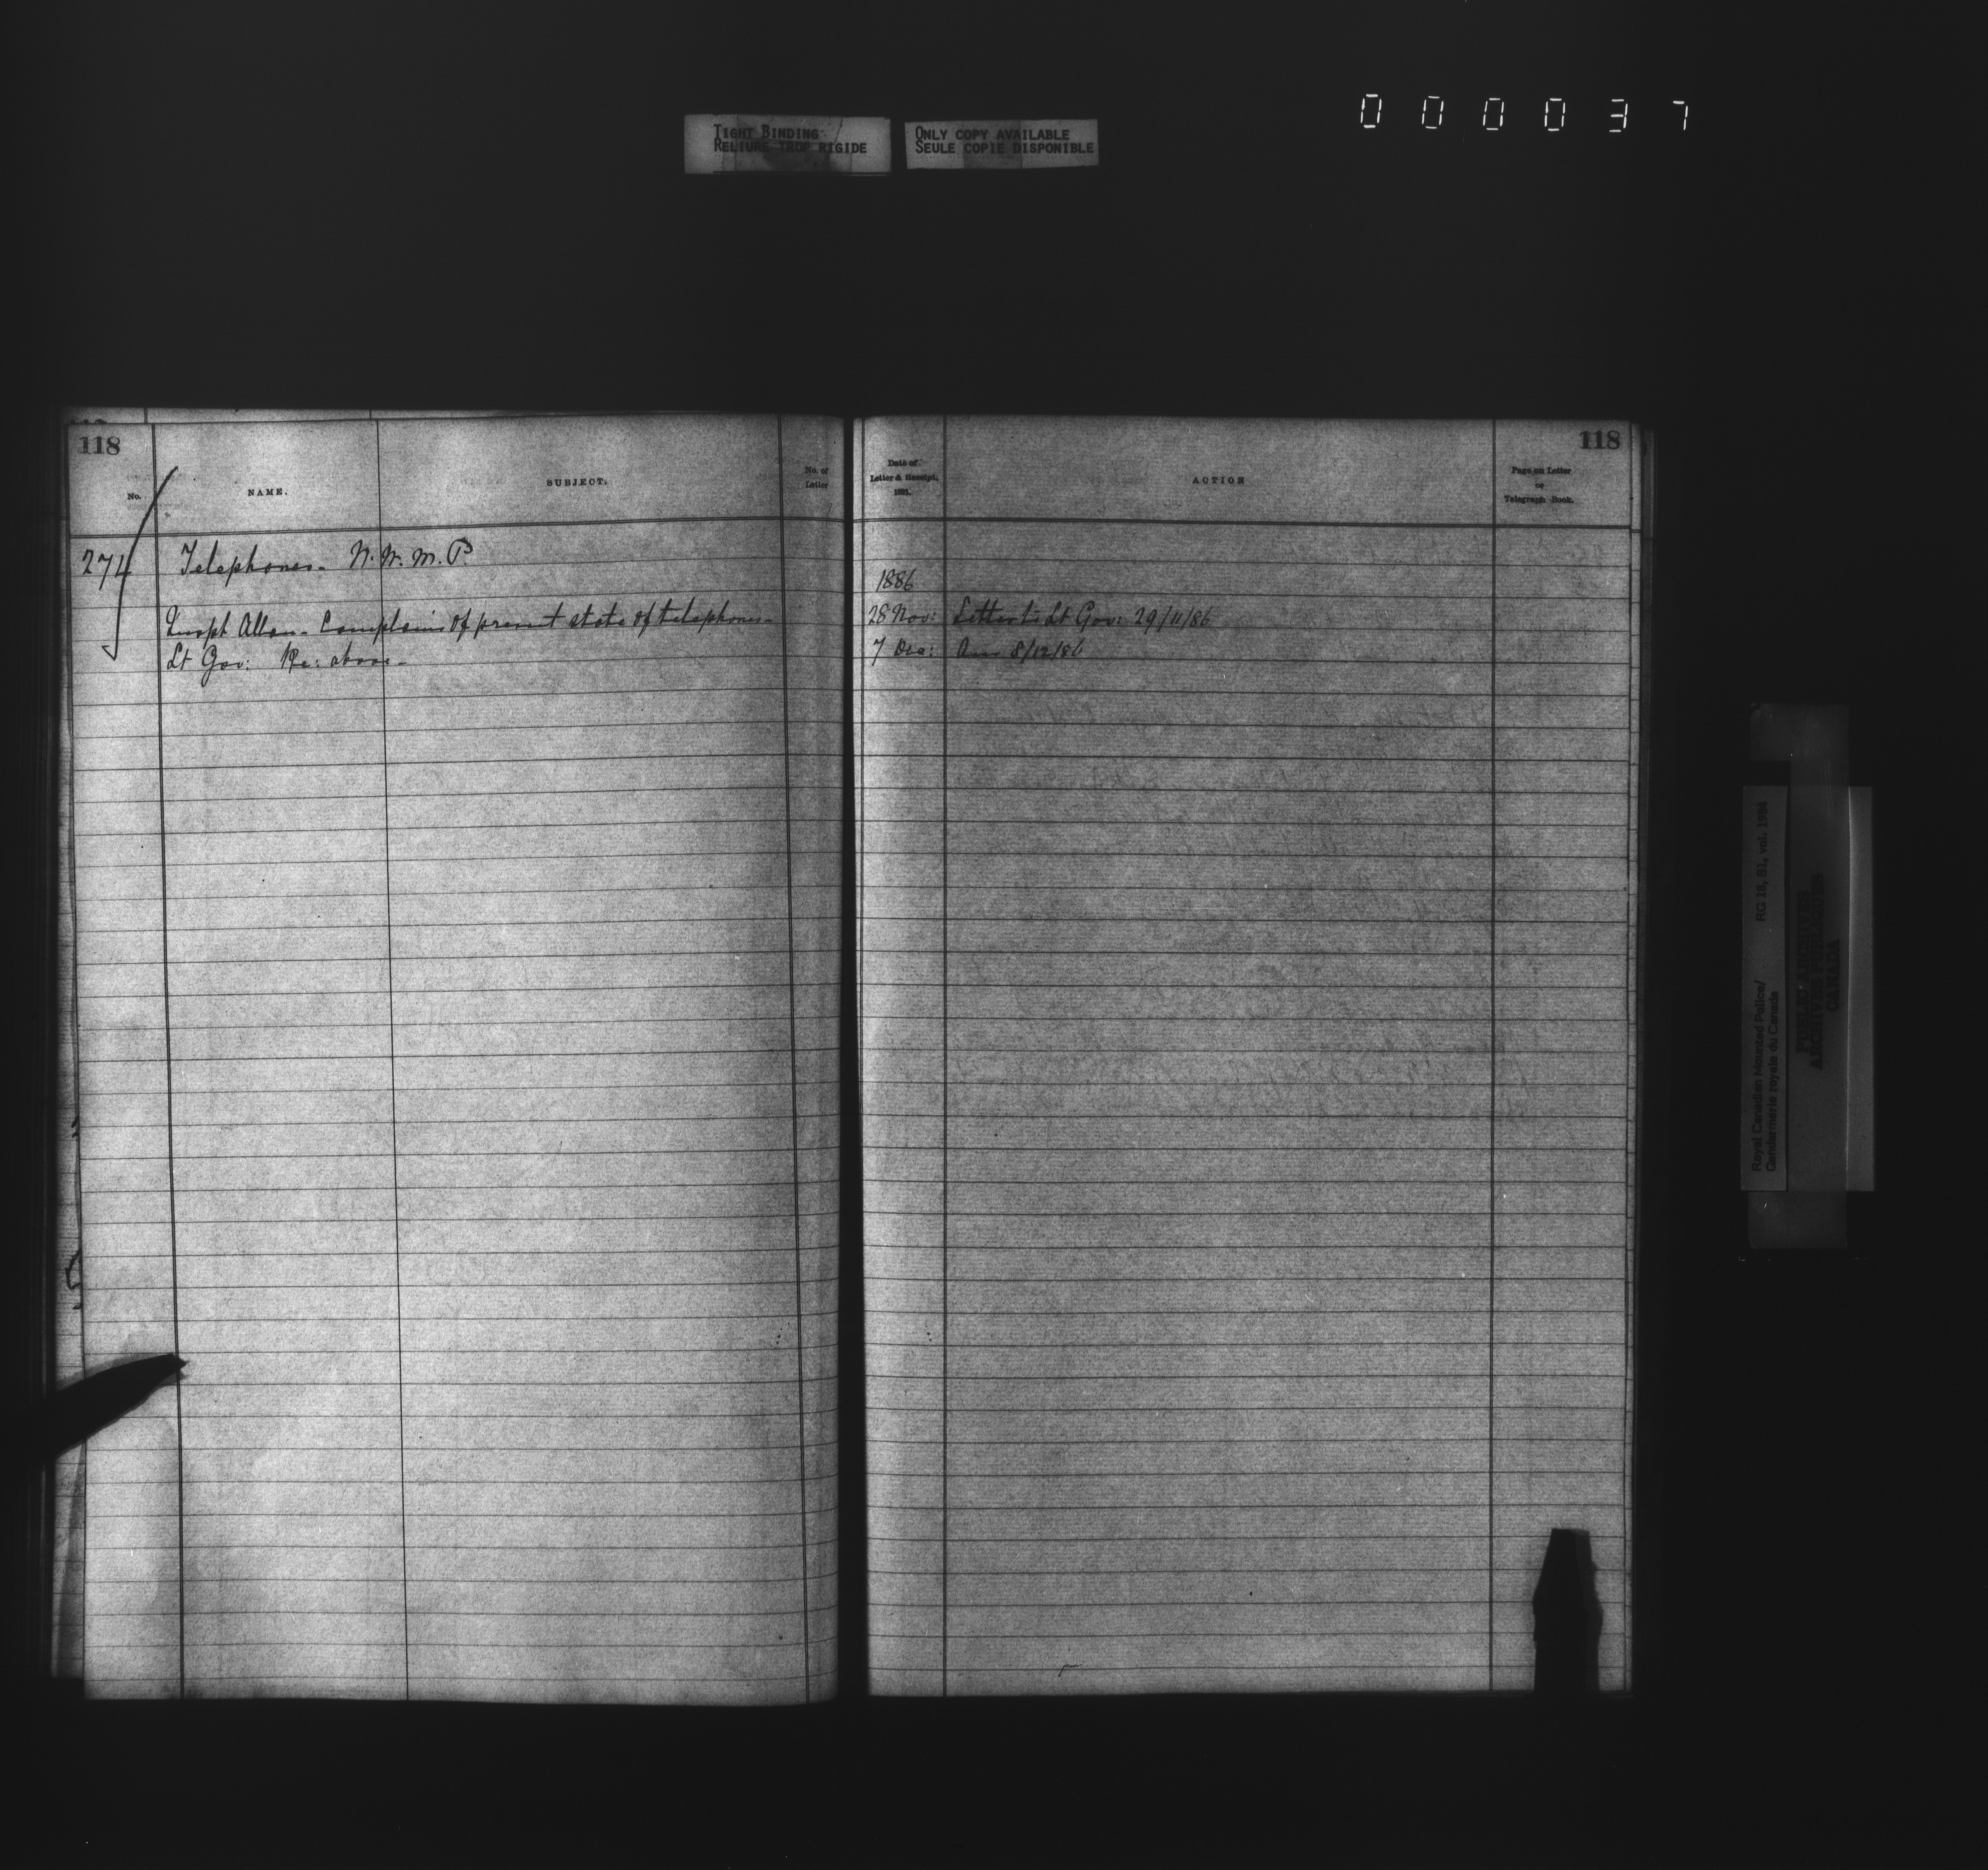 000037
TIGHT BINDING
RELIURE TROP RIGIDE
ONLY COPY AVAILABLE
SEULE COPIE DISPONIBLE
118
No.
NAME.
SUBJECT.
No. of
Letter
274
Telephones - N.W.M.P.
Inspt Allan - Complains of present state of telephones -
Lt Gov: Re: above -
118
Date of
Letter & Receipt,
1881.
ACTION
Page on Letter
or
Telegraph Book.
1886
28 Nov: Letter to Lt Gov: 29/11/86
7 Dec: Ans 8/12/86
Royal Canadian Mounted Police/
Gendarmerie royale du Canada
RG 18, B1, vol. 1984
PUBLIC ARCHIVES
ARCHIVES PUBLIQUES
CANADA